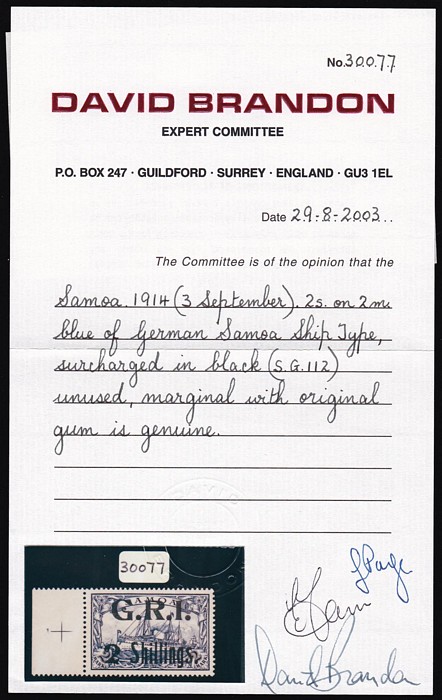 No.30077
DAVID BRANDON
EXPERT COMMITTEE
P.O. BOX 247 · GUILDFORD · SURREY · ENGLAND · GU3 1EL
Date 29-8-2003...
The Committee is of the opinion that the
Samoa. 1914 (3 September). 2s. on 2m.
blue of German Samoa Ship Type,
surcharged in black (S.G.112)
unused, marginal with original
gum is genuine.
30077
SAMOA
G.R.I.
2 Shillings.
David Brandon